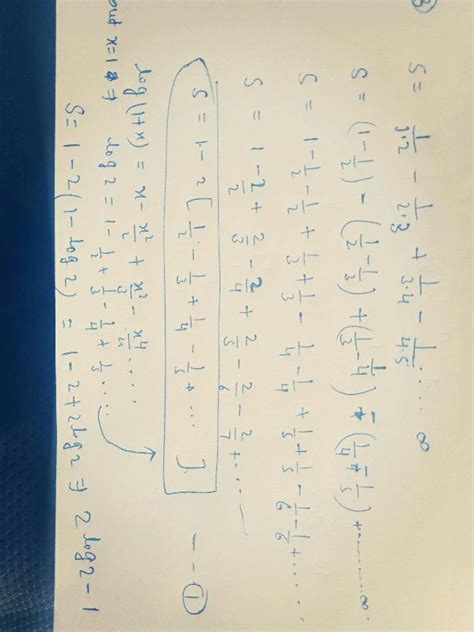 S = 1/1.2 - 1/2.3 + 1/3.4 - 1/4.5 ..... ∞
S = (1-1/2) - (1/2-1/3) + (1/3-1/4) - (1/4-1/5) + ........ ∞
S = 1-1/2-1/2+1/3+1/3-1/4-1/4+1/5+1/5-1/6-1/6+......
S = 1-2/2+2/3-2/4+2/5-2/6-2/7+.....
S = 1-2[1/2-1/3+1/4-1/5+..... ]. -- ①
log(1+x) = x-x²/2+x²/3-x⁴/4.....
put x=1 ⇒ log2 = 1-1/2+1/3-1/4+1/5.....
S = 1-2(1-log2) = 1-2+2log2 ⇒ 2log2-1